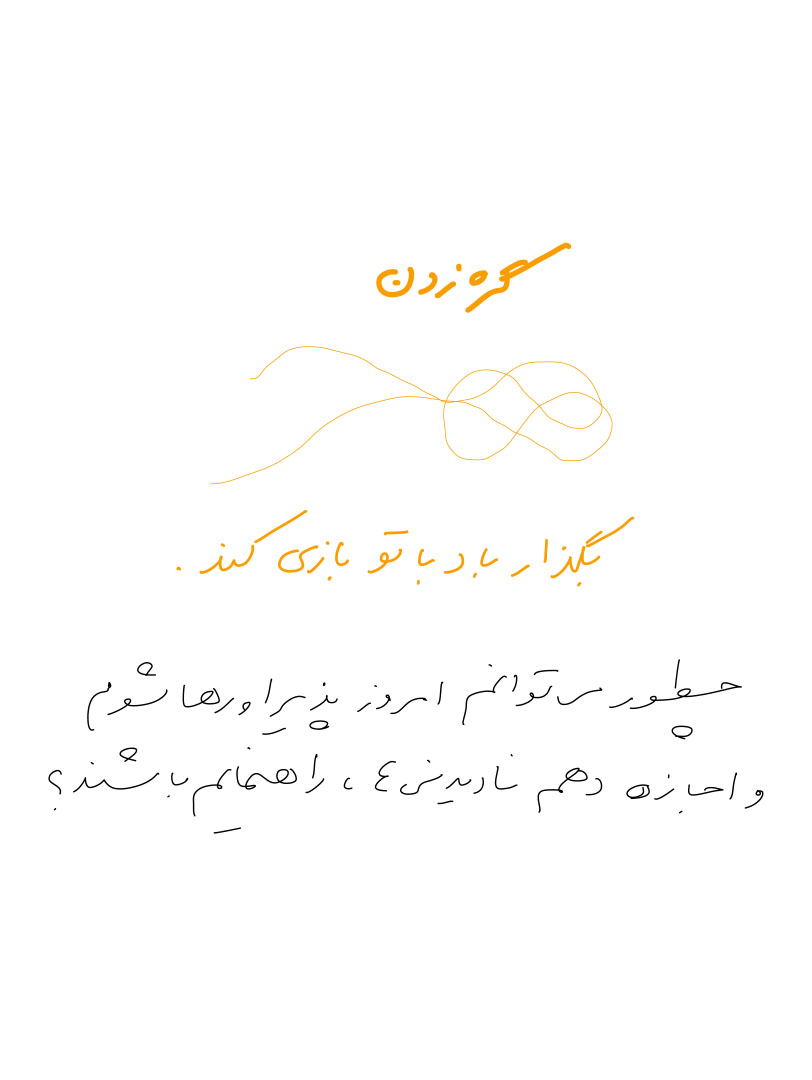 گره زدن
بگذار باد با تو بازی کند .
چطور می توانم امروز پذیرا و رها شوم
و اجازه دهم نادیدنی ها، راهنمایم باشند؟